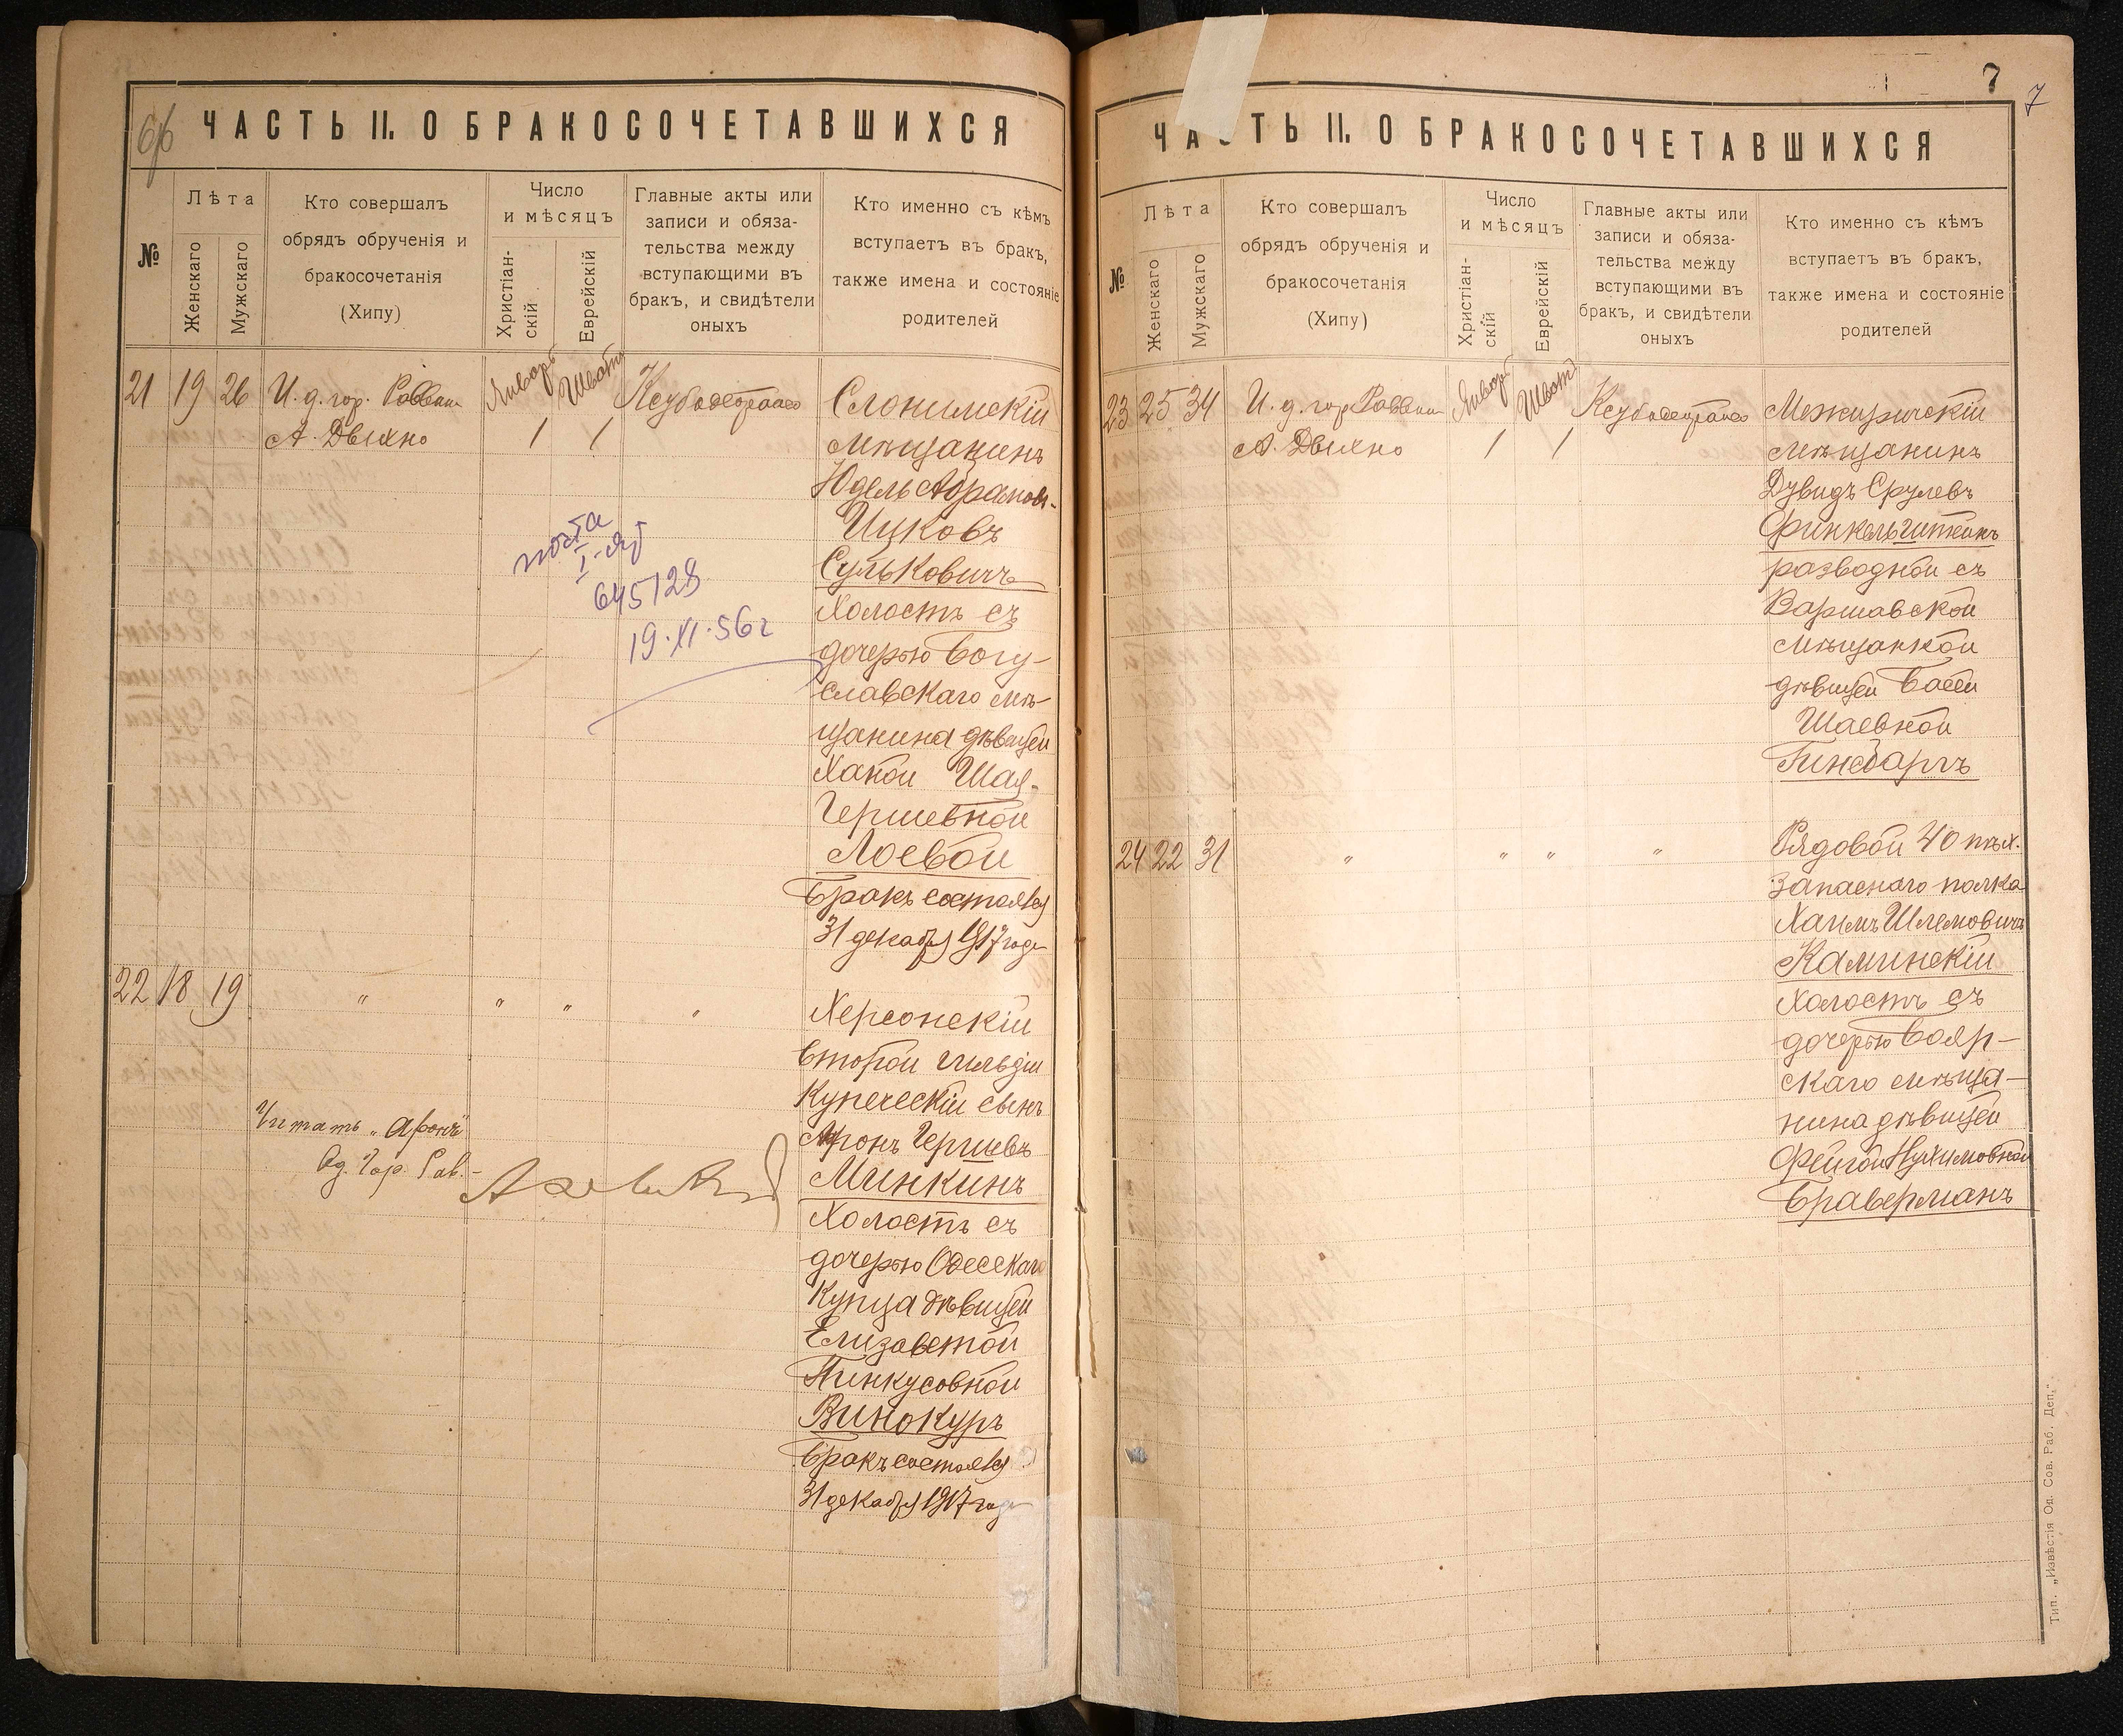 6об
ЧАСТЬ II. О БРАКОСОЧЕТАВШИХСЯ
№
Лѣта
Женскаго
Мужскаго
Кто совершалъ
обрядъ обрученія и
бракосочетанія
(Хипу)
Число
и мѣсяцъ
Христіан-
скій
Еврейскій
Главные акты или
записи и обяза-
тельства между
вступающими въ
бракъ, и свидѣтели
оныхъ
Кто именно съ кѣмъ
вступаетъ въ бракъ,
также имена и состояніе
родителей
21 19 26 И. д. гор. Раввина
А. Двыхно
Январь
1
Шватъ
1
Слонимскій
мѣщанинъ
Юдель Абрамовъ-
Ицковъ
Сульковичъ
Холостъ съ
дочерью Богу-
славскаго мѣ-
щанина дѣвицей
Ханой Шая-
Гершевной
Лоевой
Бракъ состоялся
31 декабря 1917 года
645128
19.XI.56г
22 18 19 " " " "
Херсонскій
второй гильдіи
Купеческій сынъ
Аронъ Гершевъ
Минкинъ
Холостъ съ
дочерью Одесскаго
Купца дѣвицей
Елизаветой
Пинкусовной
Винокуръ
Бракъ состоялся
31 декабря 1917 года
Читать „Аронъ"
Од. Гор. Рав.
7
7
ЧАСТЬ II. О БРАКОСОЧЕТАВШИХСЯ
№
Лѣта
Женскаго
Мужскаго
Кто совершалъ
обрядъ обрученія и
бракосочетанія
(Хипу)
Число
и мѣсяцъ
Христіан-
скій
Еврейскій
Главные акты или
записи и обяза-
тельства между
вступающими въ
бракъ, и свидѣтели
оныхъ
Кто именно съ кѣмъ
вступаетъ въ бракъ,
также имена и состояніе
родителей
23 25 34 И. д. гор. Раввина
А. Двыхно
Январь
1
Шватъ
1
Межиричскій
мѣщанинъ
Дувидъ Срулевъ
Финкельштейнъ
разводной съ
Варшавской
мѣщанкой
дѣвицей Басей
Шаевной
Гинсбаргъ
24 22 31 " " " "
Рядовой 40 пѣх.
Запаснаго полка
Хаимъ Шлемовичъ
Каминскій
Холостъ съ
дочерью Бояр-
скаго мѣща-
нина дѣвицей
Фейгой Нухимовной
Браверманъ
Тип. „Извѣстія Од. Сов. Раб. Деп."